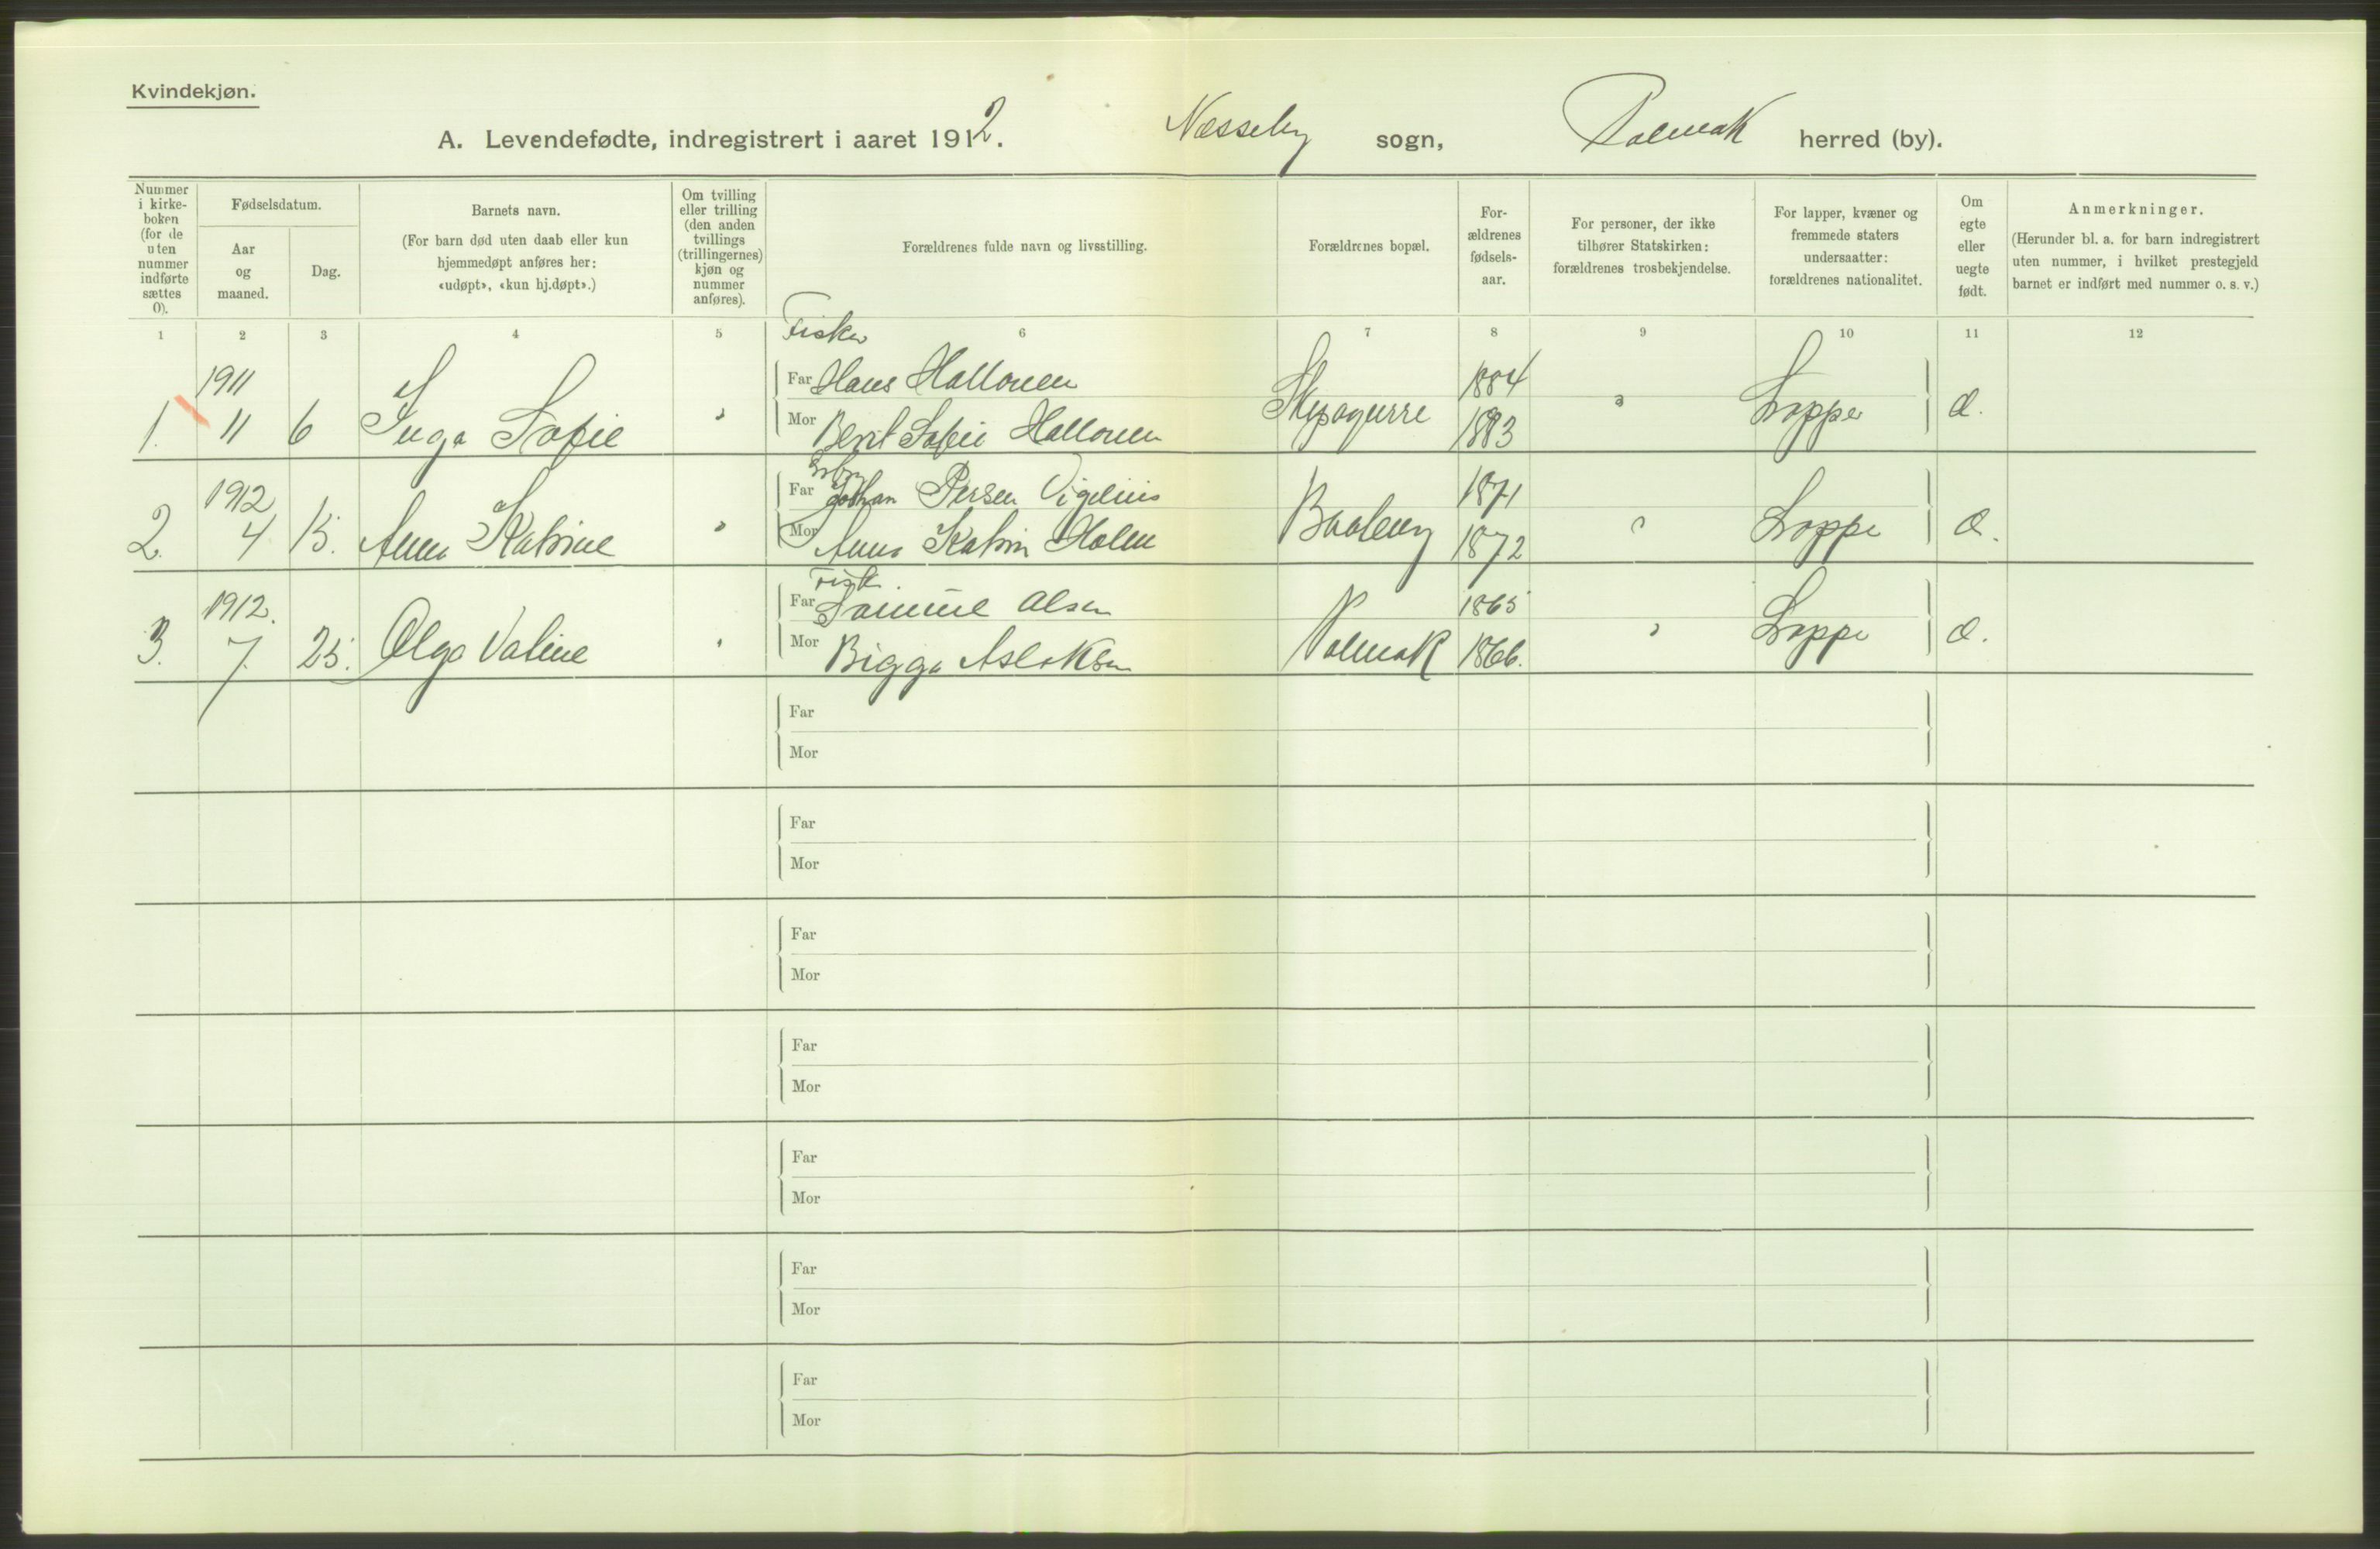 Kvindekjøn.
A. Levendefødte, indregistrert i aaret 1912. Næsseby sogn, Polmak herred (by).
Nummer i kirke-boken (for de uten nummer indførte sættes 0).
Fødselsdatum.
Aar og maaned.
Dag.
Barnets navn.
(For barn død uten daab eller kun hjemmedøpt anføres her: «udøpt», «kun hj.døpt».)
Om tvilling eller trilling (den anden tvillings (trillingernes) kjøn og nummer anføres).
Forældrenes fulde navn og livsstilling.
Forældrenes bopæl.
For-ældrenes fødsels-aar.
For personer, der ikke tilhører Statskirken: forældrenes trosbekjendelse.
For lapper, kvæner og fremmede staters undersaatter: forældrenes nationalitet.
Om egte eller uegte født.
Anmerkninger.
(Herunder bl. a. for barn indregistrert uten nummer, i hvilket prestegjeld barnet er indført med nummer o. s. v.)
1 2 3 4 5 6 7 8 9 10 11 12
Fisker
1911 Far Hans Hallonen 1884
1. 11 6 Inga Sofie " Mor Berit Sofie Hallonen Skipagurre 1883 " Lapper Æ.
1912 Far Johan Persen Vigelius 1871
2. 4 15. Anna Katrine " Mor Anna Katrin Holm 1872 " Lappe Æ.
Fisk
1912. Far Samuel Olsen 1865
3. 7. 25. Olga Valine " Mor Bigga Aslaksen Polmak 1866. " Lappe Æ.
Far
Mor
Far
Mor
Far
Mor
Far
Mor
Far
Mor
Far
Mor
Far
Mor